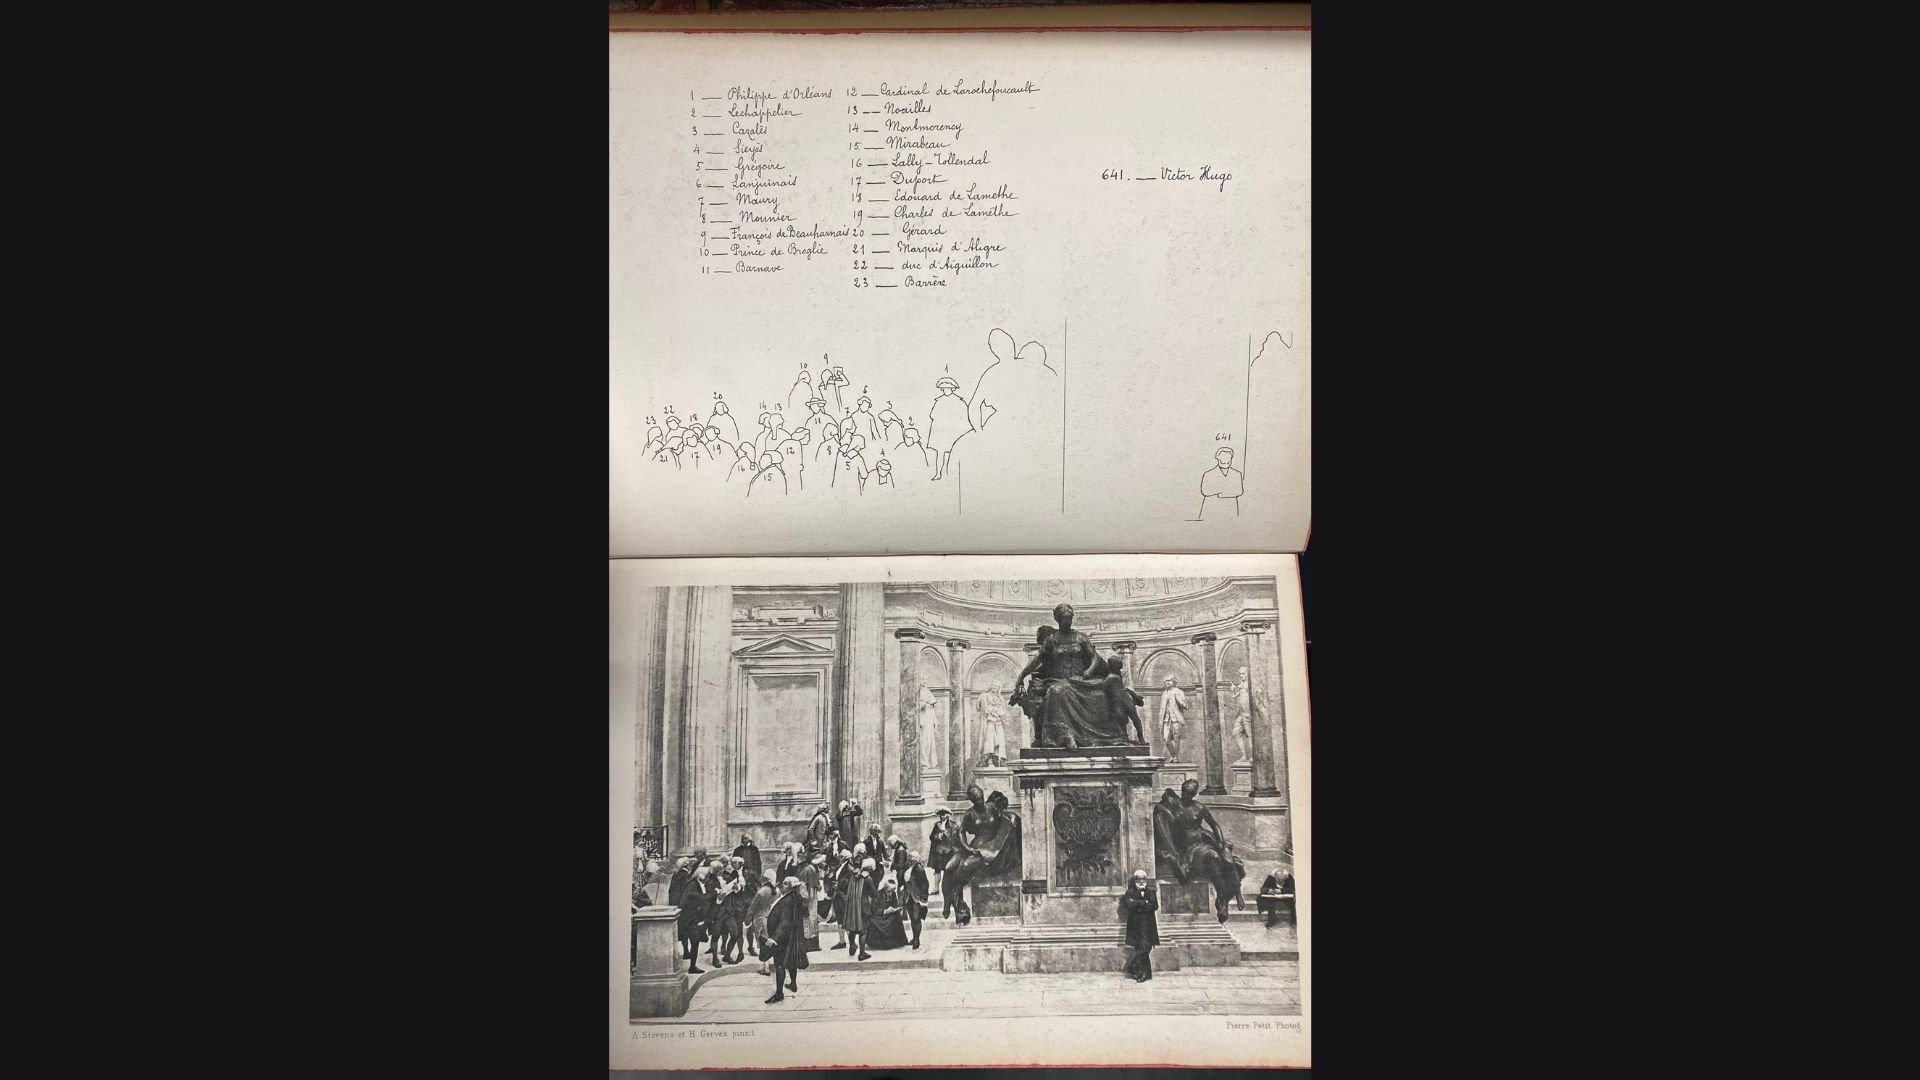 1 — Philippe d'Orléans
2 — Lechappelier
3 — Cazalès
4 — Sieyès
5 — Grégoire
6 — Lanjuinais
7 — Maury
8 — Mounier
9 — François de Beauharnais
10 — Prince de Broglie
11 — Barnave
12 — Cardinal de Larochefoucault
13 — Noailles
14 — Montmorency
15 — Mirabeau
16 — Lally-Tollendal
17 — Duport
18 — Edouard de Lamethe
19 — Charles de Laméthe
20 — Gérard
21 — Marquis d'Aligre
22 — duc d'Aiguillon
23 — Barrère
641. — Victor Hugo
1
9
10
6
20
22
14
13
3
23
18
11
7
2
641
21
17
19
16
12
8
5
4
15
A. Stevens et H. Gervex pinxit
Pierre Petit Photog.